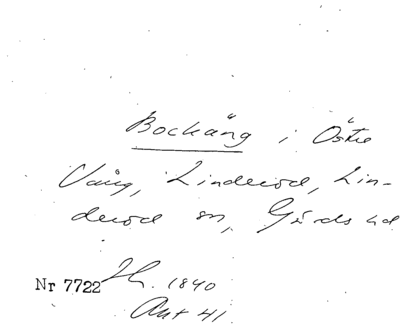 Bockäng i Östre
Vång, Linderöd, Lin-
deröd sn, Gärds hd
Nr 7722 Jh. 1840
Akt 41